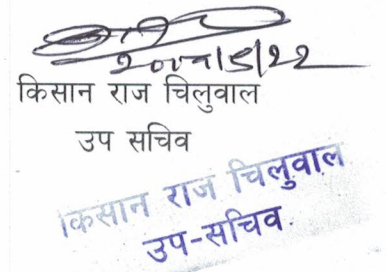 किसान राज चिलुवाल
उप सचिव
किसान राज चिलुवाल
उप-सचिव